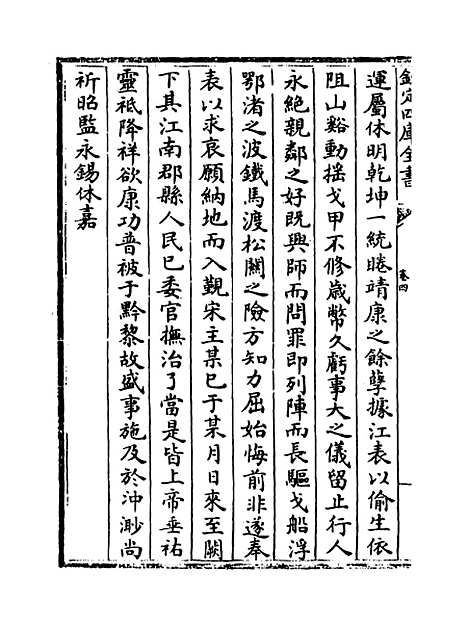 欽定四庫全書
卷四
運屬休明乾坤一統睠靖康之餘孽據江表以偷生依
阻山谿動揺戈甲不修歲幣久虧事大之儀留止行人
永絶親鄰之好既興師而問罪即列陣而長驅戈船浮
鄂渚之波鐵馬渡松關之險方知力屈始悔前非遂奉
表以求哀願納地而入覲宋主某已于某月日來至闕
下其江南郡縣人民已委官撫治了當是皆上帝垂祐
靈祗降祥欲康功普被于黔黎故盛事施及於沖渺尚
祈昭監永錫休嘉